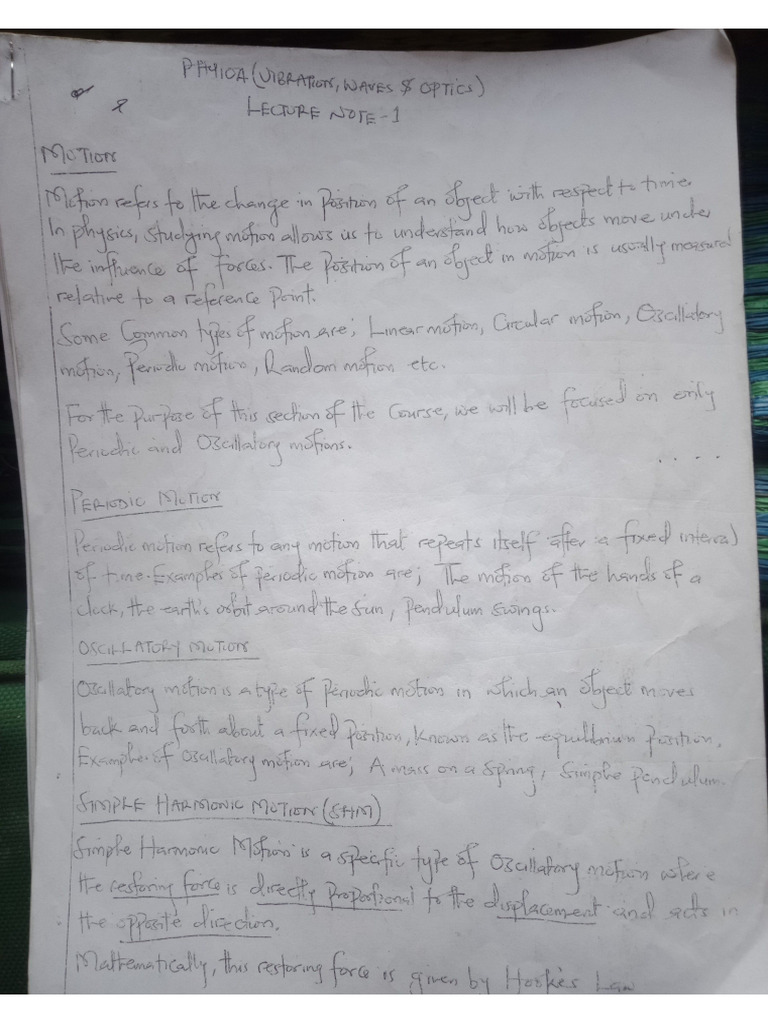 PHY10A (VIBRATION, WAVES & OPTICS)
LECTURE NOTE-1
MOTION
Motion refers to the change in Position of an object with respect to time.
In physics, studying motion allows us to understand how objects move under
the influence of forces. The Position of an object in motion is usually measured
relative to a reference Point.
Some Common types of motion are; Linear motion, Circular motion, Oscillatory
motion, Periodic motion, Random motion etc.
For the Purpose of this section of the Course, we will be focused on only
Periodic and Oscillatory motions.
. . . .
PERIODIC MOTION
Periodic motion refers to any motion that repeats itself after a fixed interval
of time. Examples of periodic motion are; The motion of the hands of a
clock, the earth's orbit around the sun, Pendulum swings.
OSCILLATORY MOTION
Oscillatory motion is a type of Periodic motion in which an object moves
back and forth about a fixed Position, Known as the equilibrium Position.
Examples of oscillatory motion are; A mass on a Spring, Simple Pendulum.
SIMPLE HARMONIC MOTION (SHM)
Simple Harmonic Motion is a specific type of Oscillatory motion where
the restoring force is directly proportional to the displacement and acts in
the opposite direction.
Mathematically, this restoring force is given by Hooke's Law